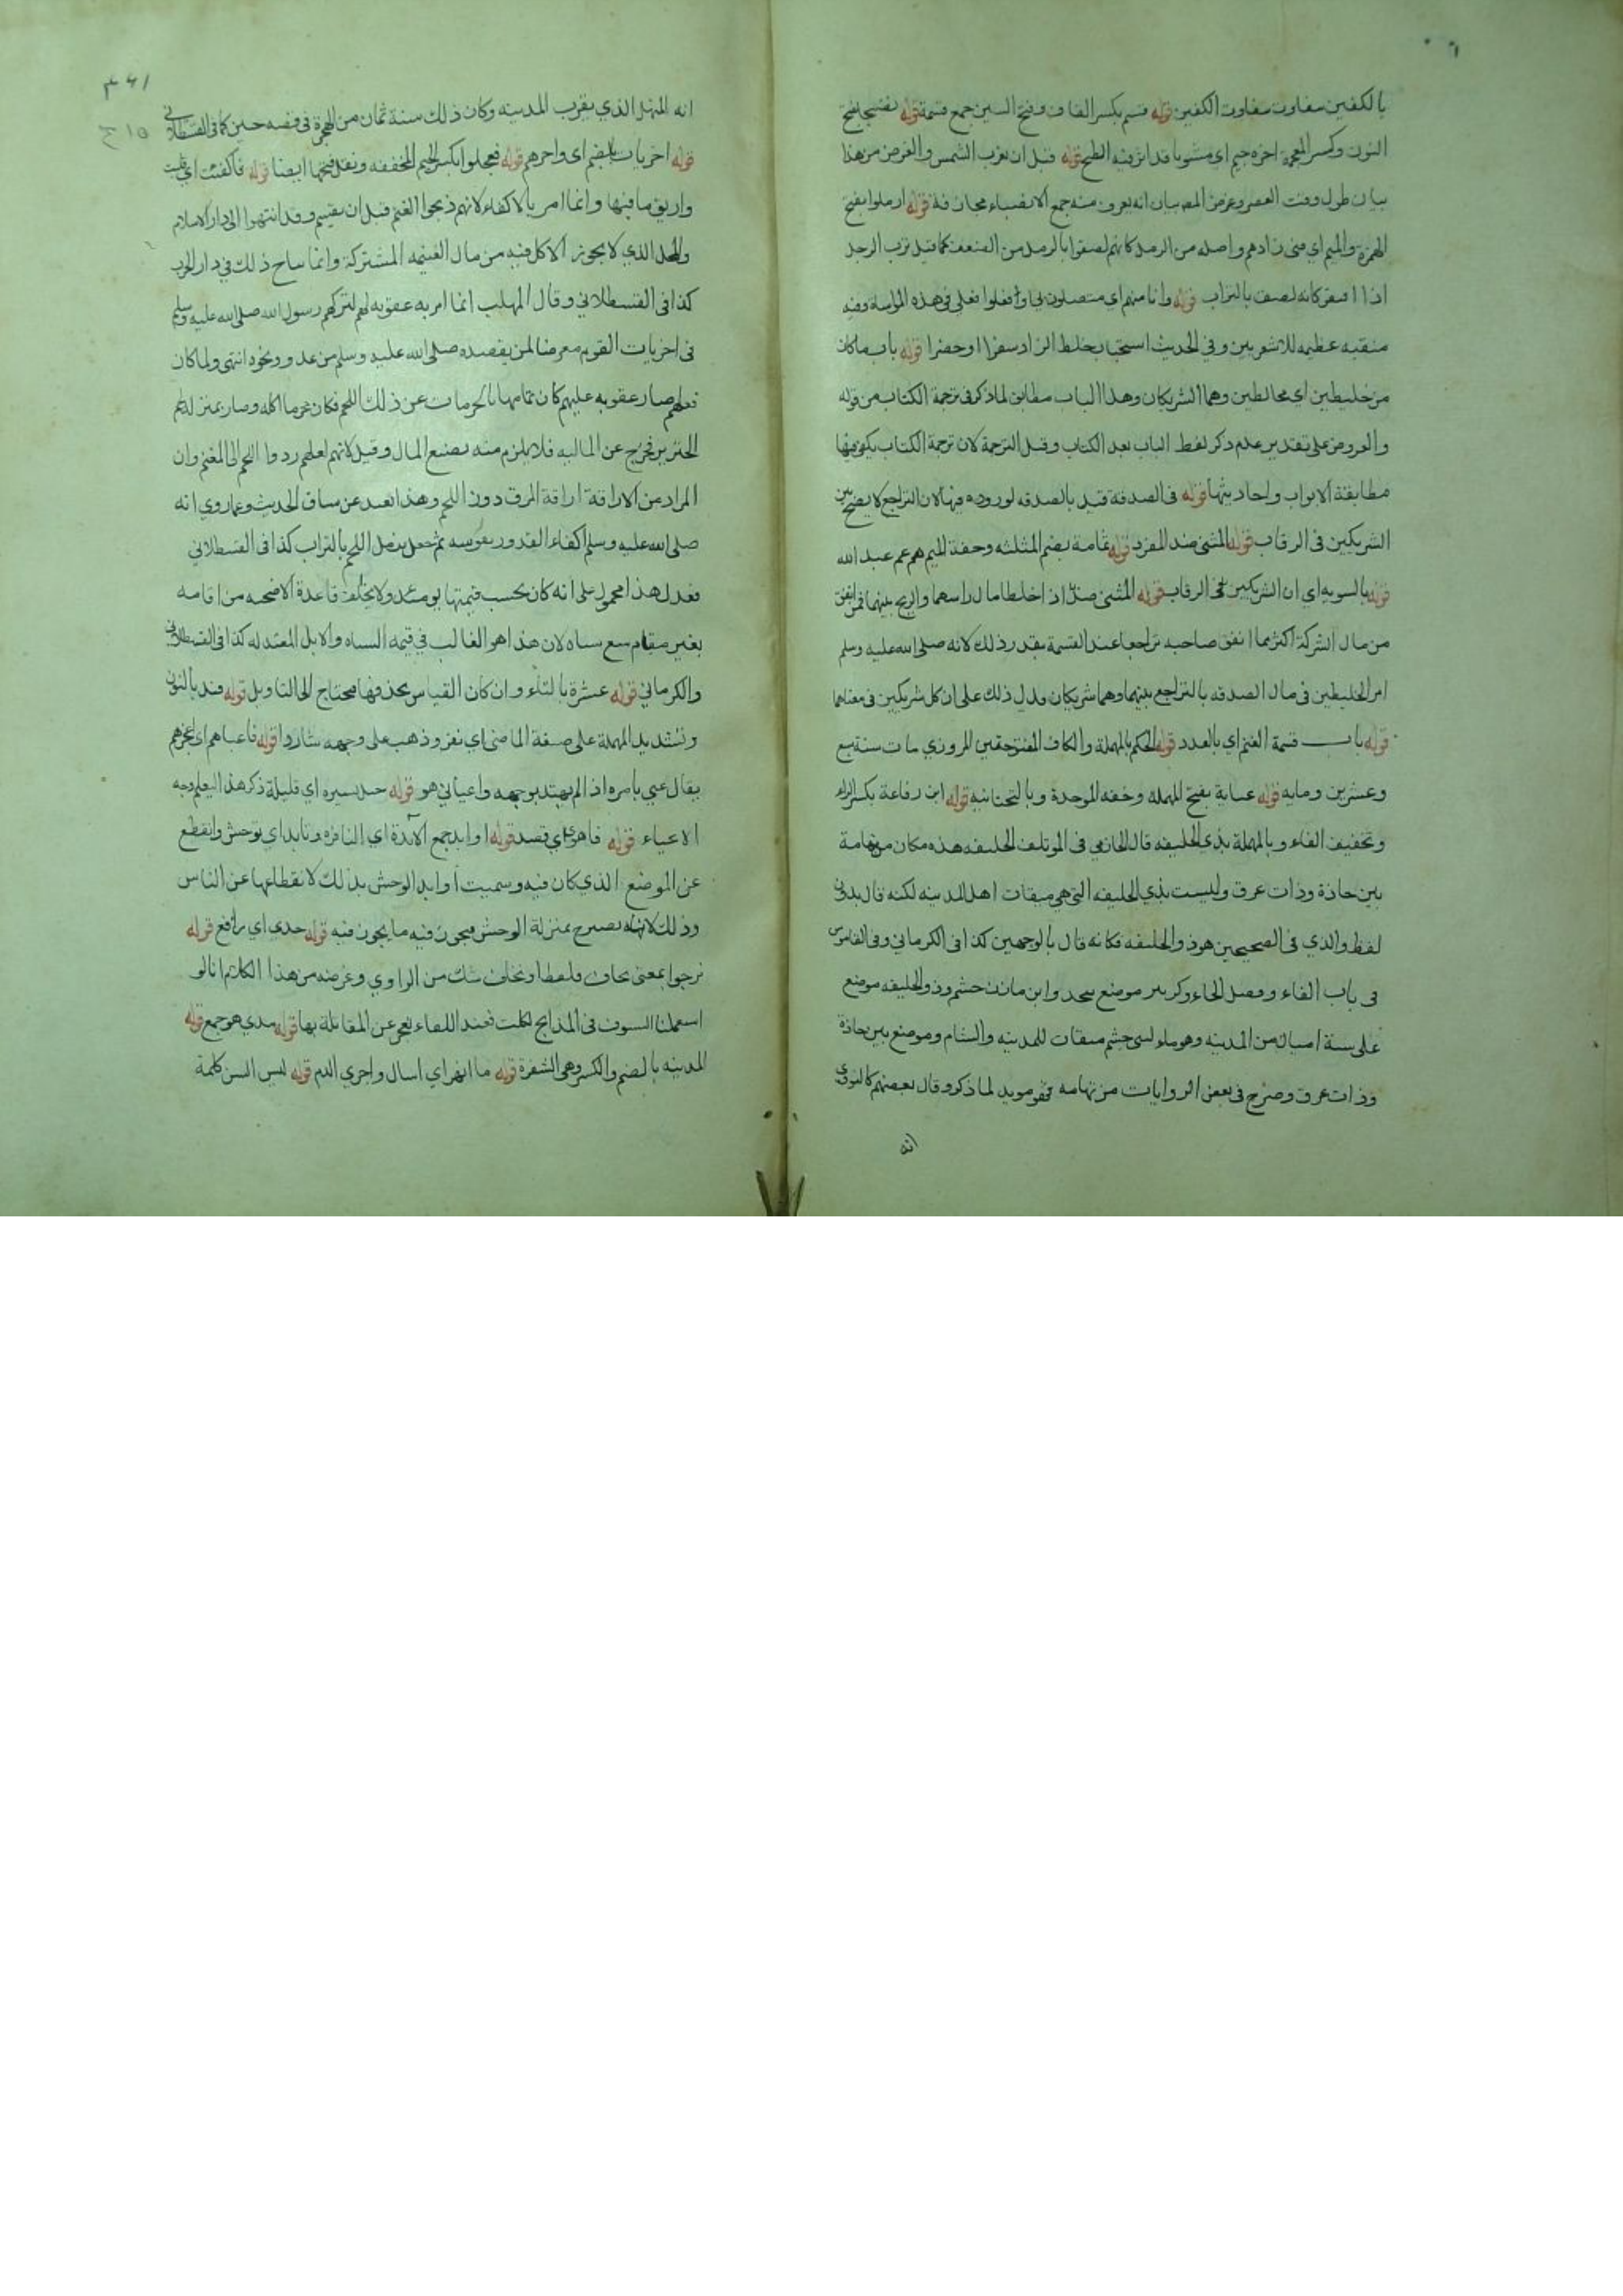 بالكفين متفاوت الكفين قوله قسم بكسر القاف وفتح السين جمع قسمة قوله نضيجا بفتح
النون وكسر المعجمة اخره جيم اي مشويا قد انزفيه الطبخ قوله قبل ان تغرب الشمس والغرض من هذا
بيان طول وقت العصر وغرض المص بيان انه يعرف منه جمع الانصباء مجازفة قوله ارملوا بفتح
الهمزة والميم اي فنى زادهم واصله من الرمل كانهم لصقوا بالرمل من الضعف كما قيل ترب الرجل
اذا افتقر كانه لصق بالتراب قوله وانا منهم اي متصلون بي او فعلوا فعلي في هذه المواساة وفيه
منقبه عظيمه للاشعريين وفي الحديث استحباب خلط الزاد سفرا او حضرا قوله باب ما كان
من خليطين اي مخالطين وهما الشريكان وهذا الباب مطابق لما ذكر في ترجمة الكتاب من قوله
والعروض على تقدير عدم ذكر لفظ الباب بعد الكتاب وقبل الترجمة لان ترجمة الكتاب يكون فيها
مطابقة الابواب واحاديثها قوله في الصدقة قيد بالصدقه لوروده فيها لان التراجع لا يصح بين
الشريكين في الرقاب قوله المثنى ضد المفرد قوله ثمامة بضم المثلثه وخفة الميم هم عم عبد الله
قوله بالسويه اي ان الشريكين في الرقاب قوله المثنى ضد اذا خلطا ما ل راسهما والربح بينهما فمن انفق
من مال الشركة اكثر مما انفق صاحبه تراجعا عند القسمة بقدر ذلك لانه صلى الله عليه وسلم
امر الخليطين في مال الصدقه بالتراجع بينهما وهما شريكان فدل ذلك على ان كل شريكين في معناهما
قوله باب قسمة الغنم اي بالعدد قوله الحكم بالمهملة والكاف المفتوحتين المروزي مات سنة تسع
وعشرين ومايه قوله عباية بفتح المهملة وخفه الموحدة وبالتحتانيه قوله ابن رفاعة بكسر الراء
وتخفيف الفاء وبالمهملة بذي الحليفه قال الحازمي في الموتلف الحليفه هذه مكان من تهامة
بين حاذة وذات عرق وليست بذي الحليفه التي هي ميقات اهل المدينه لكنه قال بدون
لفظ والذي في الصحيحين هو ذو الحليفه فكانه قال بالوجهين كذا في الكرماني وفي القاموس
في باب الفاء وفصل الحاء وكزبير موضع بنجد وابن مازن بن جشم وذو الحليفه موضع
على ستة اميال من المدينه وهو ماء لبني جشم ميقات للمدينه والشام وموضع بين حاذة
وذات عرق وصرح في بعض الروايات من تهامه فهو مويد لما ذكر وقال بعضهم كالنووي
انه
٣٤١
انه المهل الذي بقرب المدينه وكان ذلك سنة ثمان من الهجرة في قصه حنين كما في القسطلاني
قوله اخريات بالضم اي واخرهم قوله فعجلوا بكسر الجيم المخففه ونقل فتحها ايضا قوله فاكفئت اي قلبت
واريق ما فيها وانما امر بالاكفاء لانهم ذبحوا الغنم قبل ان يقسم وقد انتهوا الى دار الاسلام
والمحل الذي لا يجوز الاكل فيه من مال الغنيمه المشتركة وانما يباح ذلك في دار الحرب
كذا في القسطلاني وقال المهلب انما امر به عقوبه لهم لتركهم رسول الله صلى الله عليه وسلم
في اخريات القوم معرضا لمن يقصده صلى الله عليه وسلم من عدو ونحوه انتهى ولما كان
فعلهم صار عقوبه عليهم كان تمامها بالحرمات عن ذلك اللحم فكان محرما اكله وصار بمنزله لحم
الخنزير فخرج عن الماليه فلا يلزم منه تضييع المال وقيل لانهم لعلهم ردوا اللحم الى المغنم وان
المراد من الاراقة اراقة المرق دون اللحم وهذا بعيد عن سياق الحديث وعما روي انه
صلى الله عليه وسلم اكفاء القدور بقوسه ثم جعل يرمل اللحم بالتراب كذا في القسطلاني
فعدل هذا محمول على انه كان بحسب قيمتها يومئذ ولا يخالف قاعدة الاضحيه من اقامه
بعير مقام سبع شياه لان هذا هو الغالب في قيمه الشياه والابل المعتدله كذا في القسطلاني
والكرماني قوله عشرة بالتاء وان كان القياس بحذفها محتاج الى التاويل قوله فند بالنون
وتشديد المهملة على صيغة الماضي اي نفر وذهب على وجهه شاردا قوله فاعياهم اي اعجزهم
يقال عيي بامره اذا لم يهتد بوجهه واعياني هو قوله خيل يسيره اي قليلة ذكر هذا ليعلم وجه
الاعياء قوله فاهوى اي قصد قوله اوابد جمع الآبدة اي النافره وتابد اي توحش وانقطع
عن الموضع الذي كان فيه وسميت اوابد الوحش بذلك لانقطاعها عن الناس
وذلك لانه يصير بمنزلة الوحش فيجوز فيه ما يجوز فيه قوله جدي اي رافع قوله
نرجوا بمعنى نخاف ولفظا ونخاف شك من الراوي وغرضه من هذا الكلام انا لو
استعملنا السيوف في المذابح لكلت فعند اللقاء نعجز عن المقاتلة بها قوله مدي هو جمع قوله
المدينه بالضم والكسر وهي الشفرة قوله ما انهر اي اسال واجرى الدم قوله ليس السن كلمة